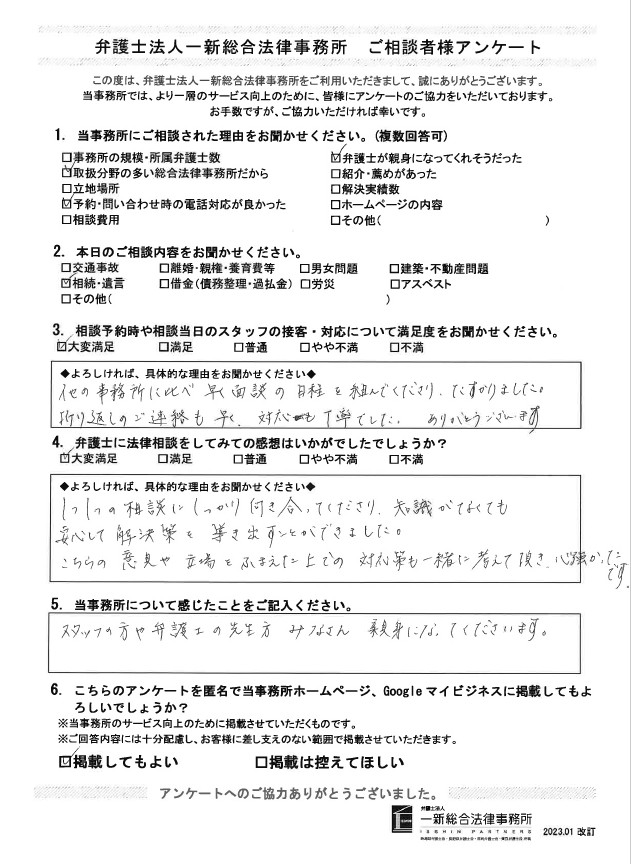 弁護士法人一新総合法律事務所　ご相談者様アンケート
この度は、弁護士法人一新総合法律事務所をご利用いただきまして、誠にありがとうございます。
当事務所では、より一層のサービス向上のために、皆様にアンケートのご協力をいただいております。
お手数ですが、ご協力いただければ幸いです。
1. 当事務所にご相談された理由をお聞かせください。(複数回答可)
□事務所の規模・所属弁護士数
☑弁護士が親身になってくれそうだった
☑取扱分野の多い総合法律事務所だから
□紹介・薦めがあった
□立地場所
□解決実績数
☑予約・問い合わせ時の電話対応が良かった
□ホームページの内容
□相談費用
□その他(　　　)
2. 本日のご相談内容をお聞かせください。
□交通事故　□離婚・親権・養育費等　□男女問題　□建築・不動産問題
☑相続・遺言　□借金(債務整理・過払金)　□労災　□アスベスト
□その他(　　　)
3. 相談予約時や相談当日のスタッフの接客・対応について満足度をお聞かせください。
☑大変満足　□満足　□普通　□やや不満　□不満
◆よろしければ、具体的な理由をお聞かせください◆
他の事務所に比べ 早く面談の日程を組んでくださり、たすかりました。
折り返しのご連絡も早く、対応も丁寧でした。ありがとうございます
4. 弁護士に法律相談をしてみての感想はいかがでしたでしょうか?
☑大変満足　□満足　□普通　□やや不満　□不満
◆よろしければ、具体的な理由をお聞かせください◆
1つ1つの相談にしっかり付き合ってくださり、知識がなくても
安心して解決策を導き出すことができました。
こちらの意見や立場をふまえた上での対応策も一緒に考えて頂き、心強かった
です。
5. 当事務所について感じたことをご記入ください。
スタッフの方や弁護士の先生方 みなさん 親身になってくださいます。
6. こちらのアンケートを匿名で当事務所ホームページ、Googleマイビジネスに掲載してもよ
ろしいでしょうか?
※当事務所のサービス向上のために掲載させていただくものです。
※ご回答内容には十分配慮し、お客様に差し支えのない範囲で掲載させていただきます。
☑掲載してもよい　□掲載は控えてほしい
アンケートへのご協力ありがとうございました。
弁護士法人
一新総合法律事務所
ISSHIN PARTNERS
2023.01 改訂